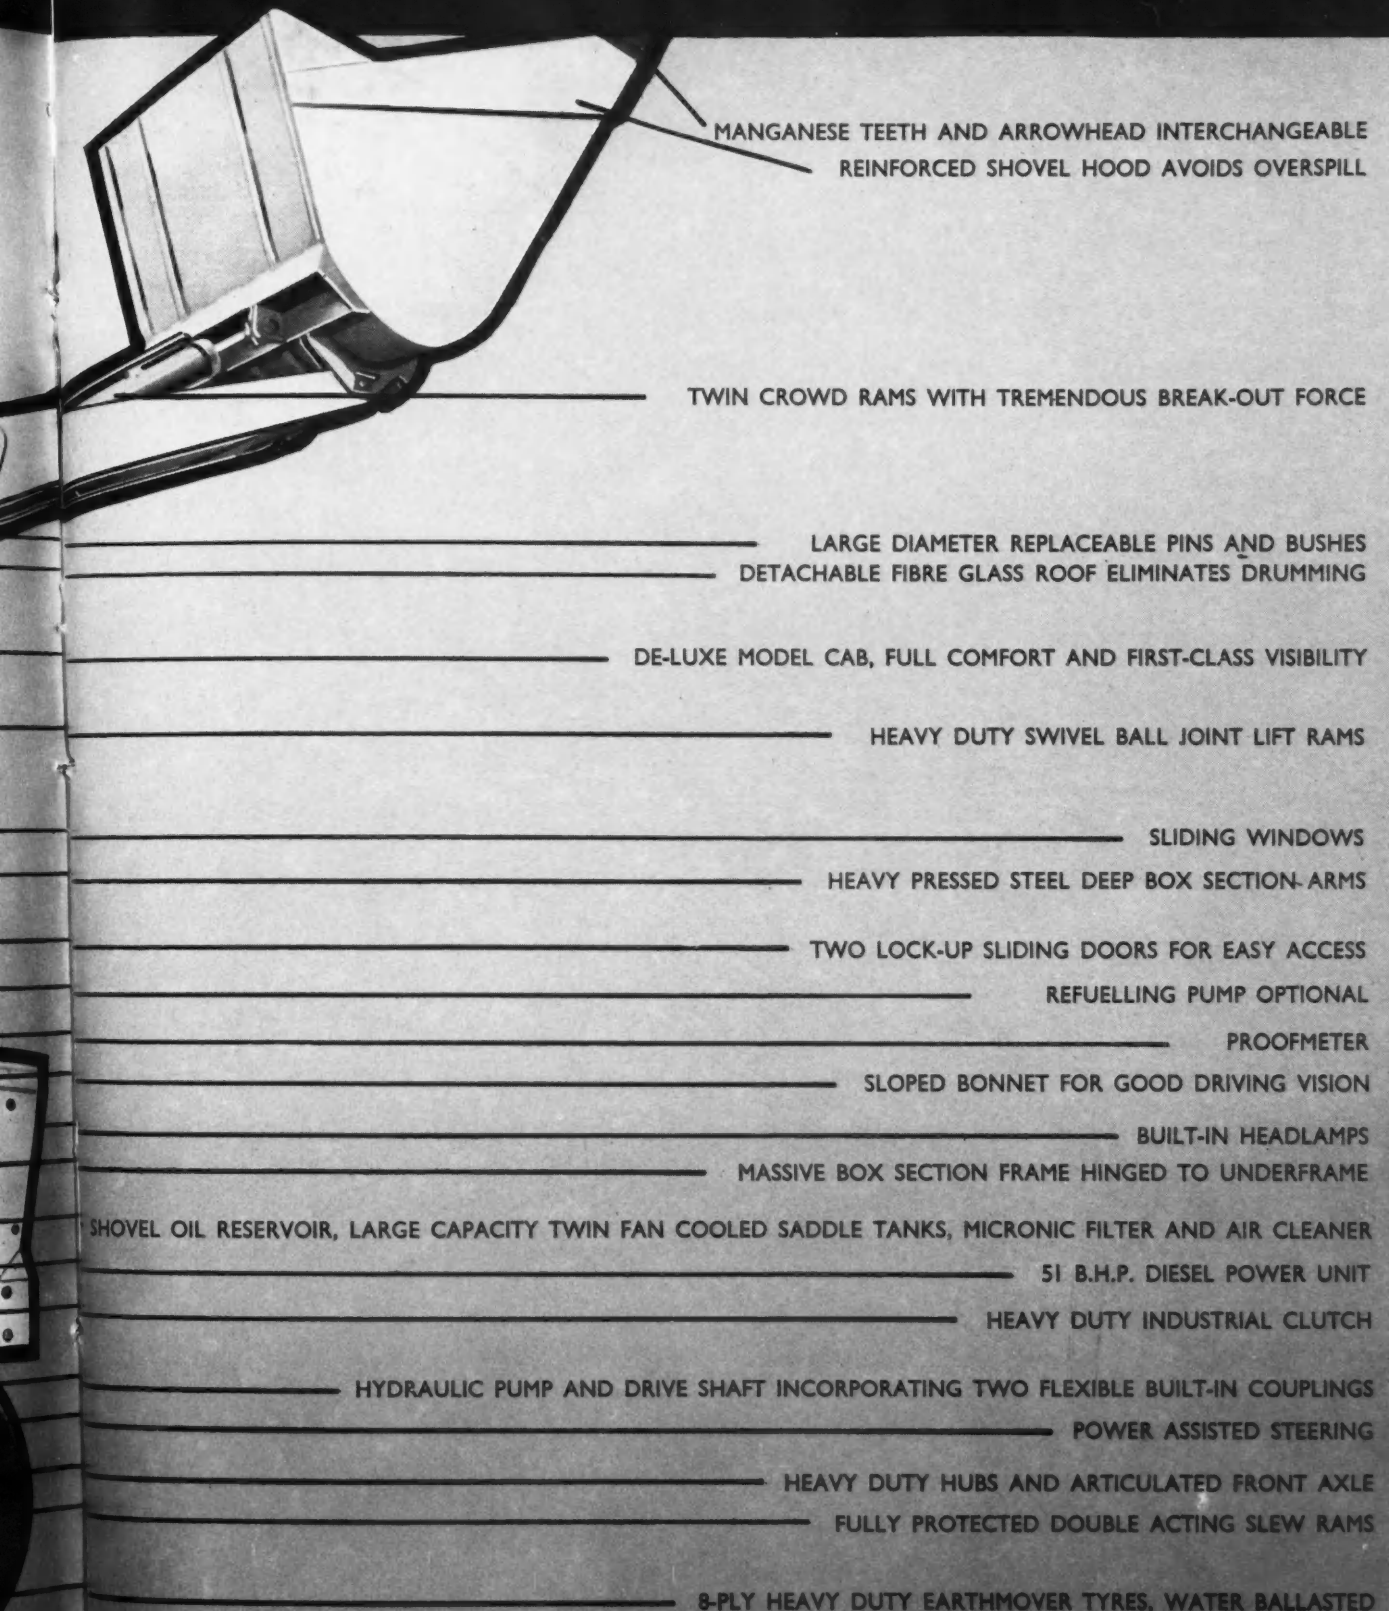 MANGANESE TEETH AND ARROWHEAD INTERCHANGEABLE
REINFORCED SHOVEL HOOD AVOIDS OVERSPILL
TWIN CROWD RAMS WITH TREMENDOUS BREAK-OUT FORCE
LARGE DIAMETER REPLACEABLE PINS AND BUSHES
DETACHABLE FIBRE GLASS ROOF ELIMINATES DRUMMING
DE-LUXE MODEL CAB, FULL COMFORT AND FIRST-CLASS VISIBILITY
HEAVY DUTY SWIVEL BALL JOINT LIFT RAMS
SLIDING WINDOWS
HEAVY PRESSED STEEL DEEP BOX SECTION ARMS
TWO LOCK-UP SLIDING DOORS FOR EASY ACCESS
REFUELLING PUMP OPTIONAL
PROOFMETER
SLOPED BONNET FOR GOOD DRIVING VISION
BUILT-IN HEADLAMPS
MASSIVE BOX SECTION FRAME HINGED TO UNDERFRAME
SHOVEL OIL RESERVOIR, LARGE CAPACITY TWIN FAN COOLED SADDLE TANKS, MICRONIC FILTER AND AIR CLEANER
51 B.H.P. DIESEL POWER UNIT
HEAVY DUTY INDUSTRIAL CLUTCH
HYDRAULIC PUMP AND DRIVE SHAFT INCORPORATING TWO FLEXIBLE BUILT-IN COUPLINGS
POWER ASSISTED STEERING
HEAVY DUTY HUBS AND ARTICULATED FRONT AXLE
FULLY PROTECTED DOUBLE ACTING SLEW RAMS
8-PLY HEAVY DUTY EARTHMOVER TYRES, WATER BALLASTED